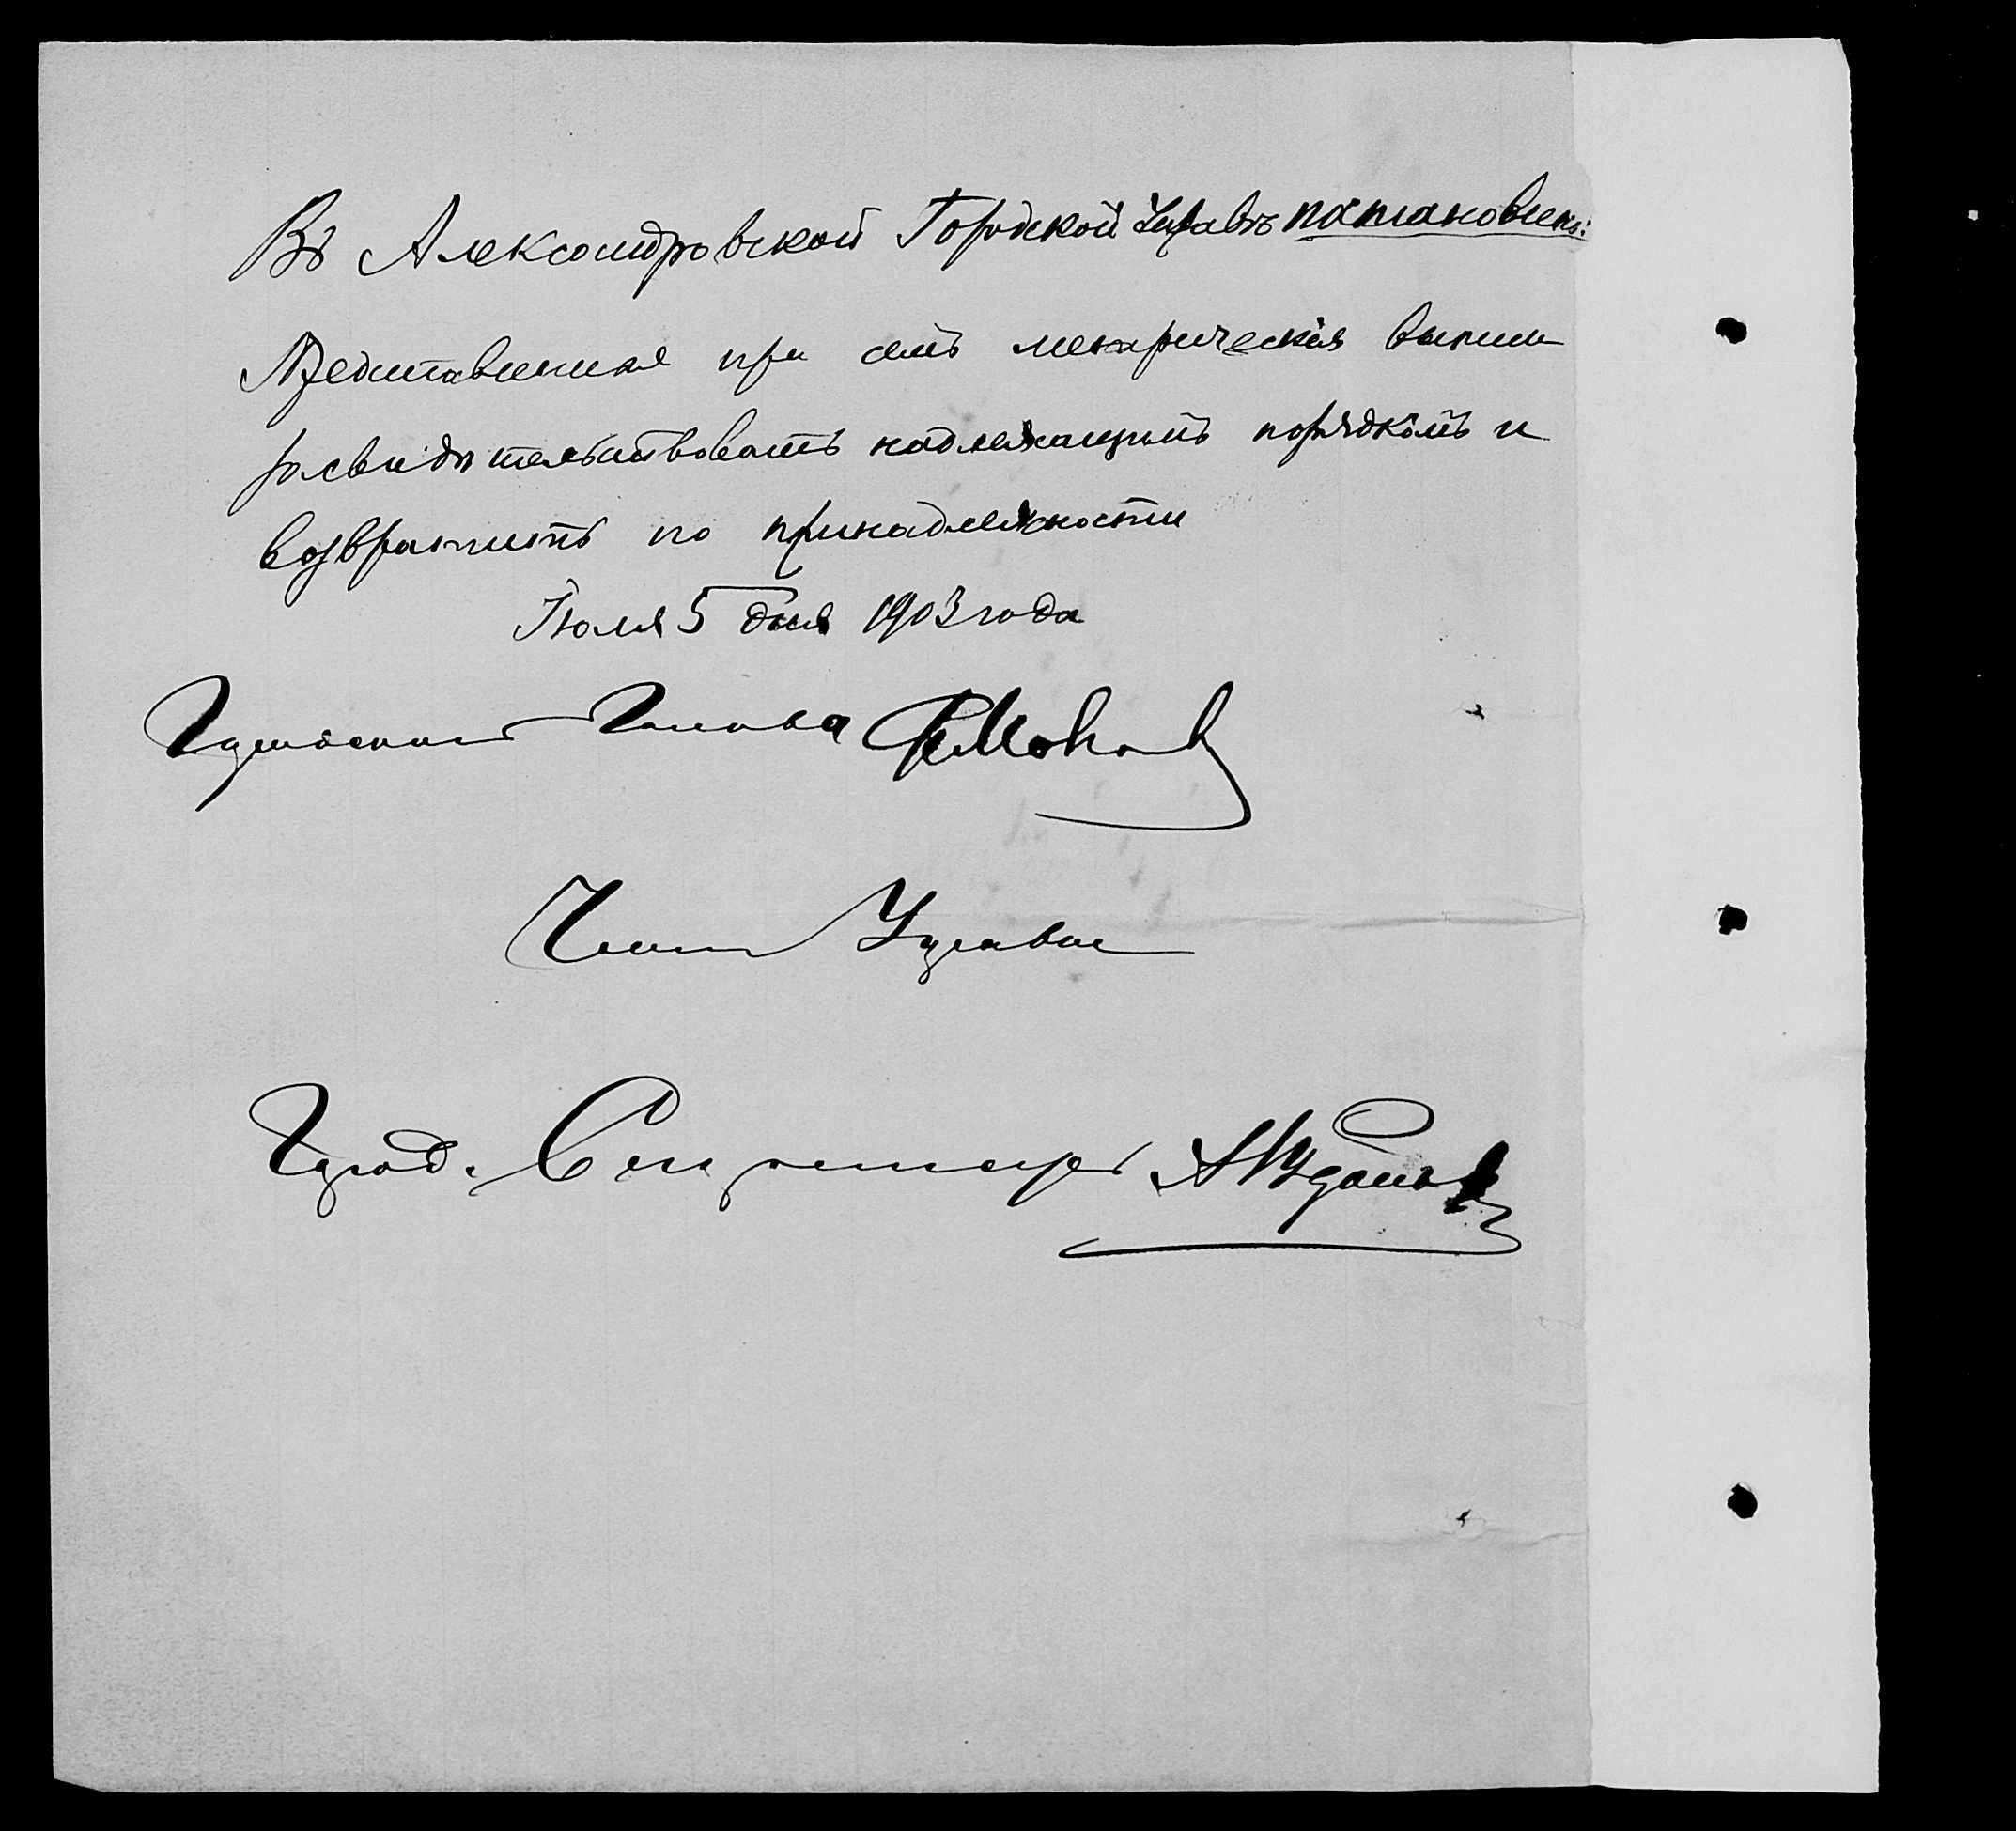 Въ Александровской Городской Управѣ постановлено:
Представленная при семъ метрическія выписи
засвидѣтельствовать надлежащимъ порядкомъ и
возвратить по принадлежности
Іюля 5 дня 1903 года
Городской Голова
Члены Управы
Город. Секретарь